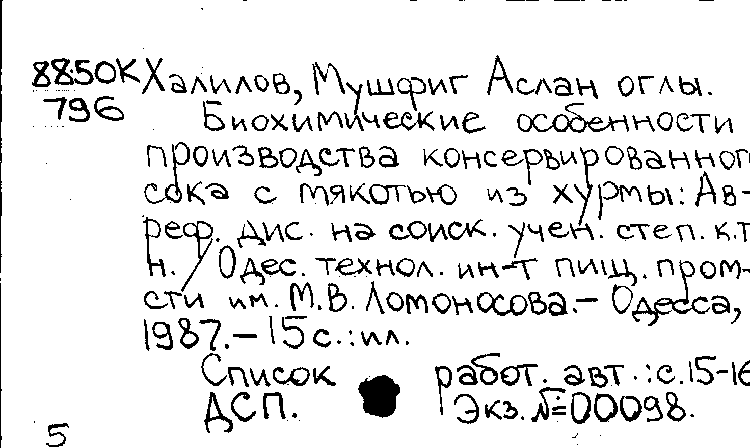 8850К Халилов, Мушфиг Аслан оглы.
796 Биохимические особенности
производства консервированног
сока с мякотью из хурмы: Ав-
реф. дис. на соиск. учен. степ. к.т
н. / Одес. технол. ин-т пищ. пром-
сти им. М.В. Ломоносова. – Одесса,
1987. – 15 с. : ил.
Список работ. авт. : с. 15-16
ДСП. Экз. № 00098.
5